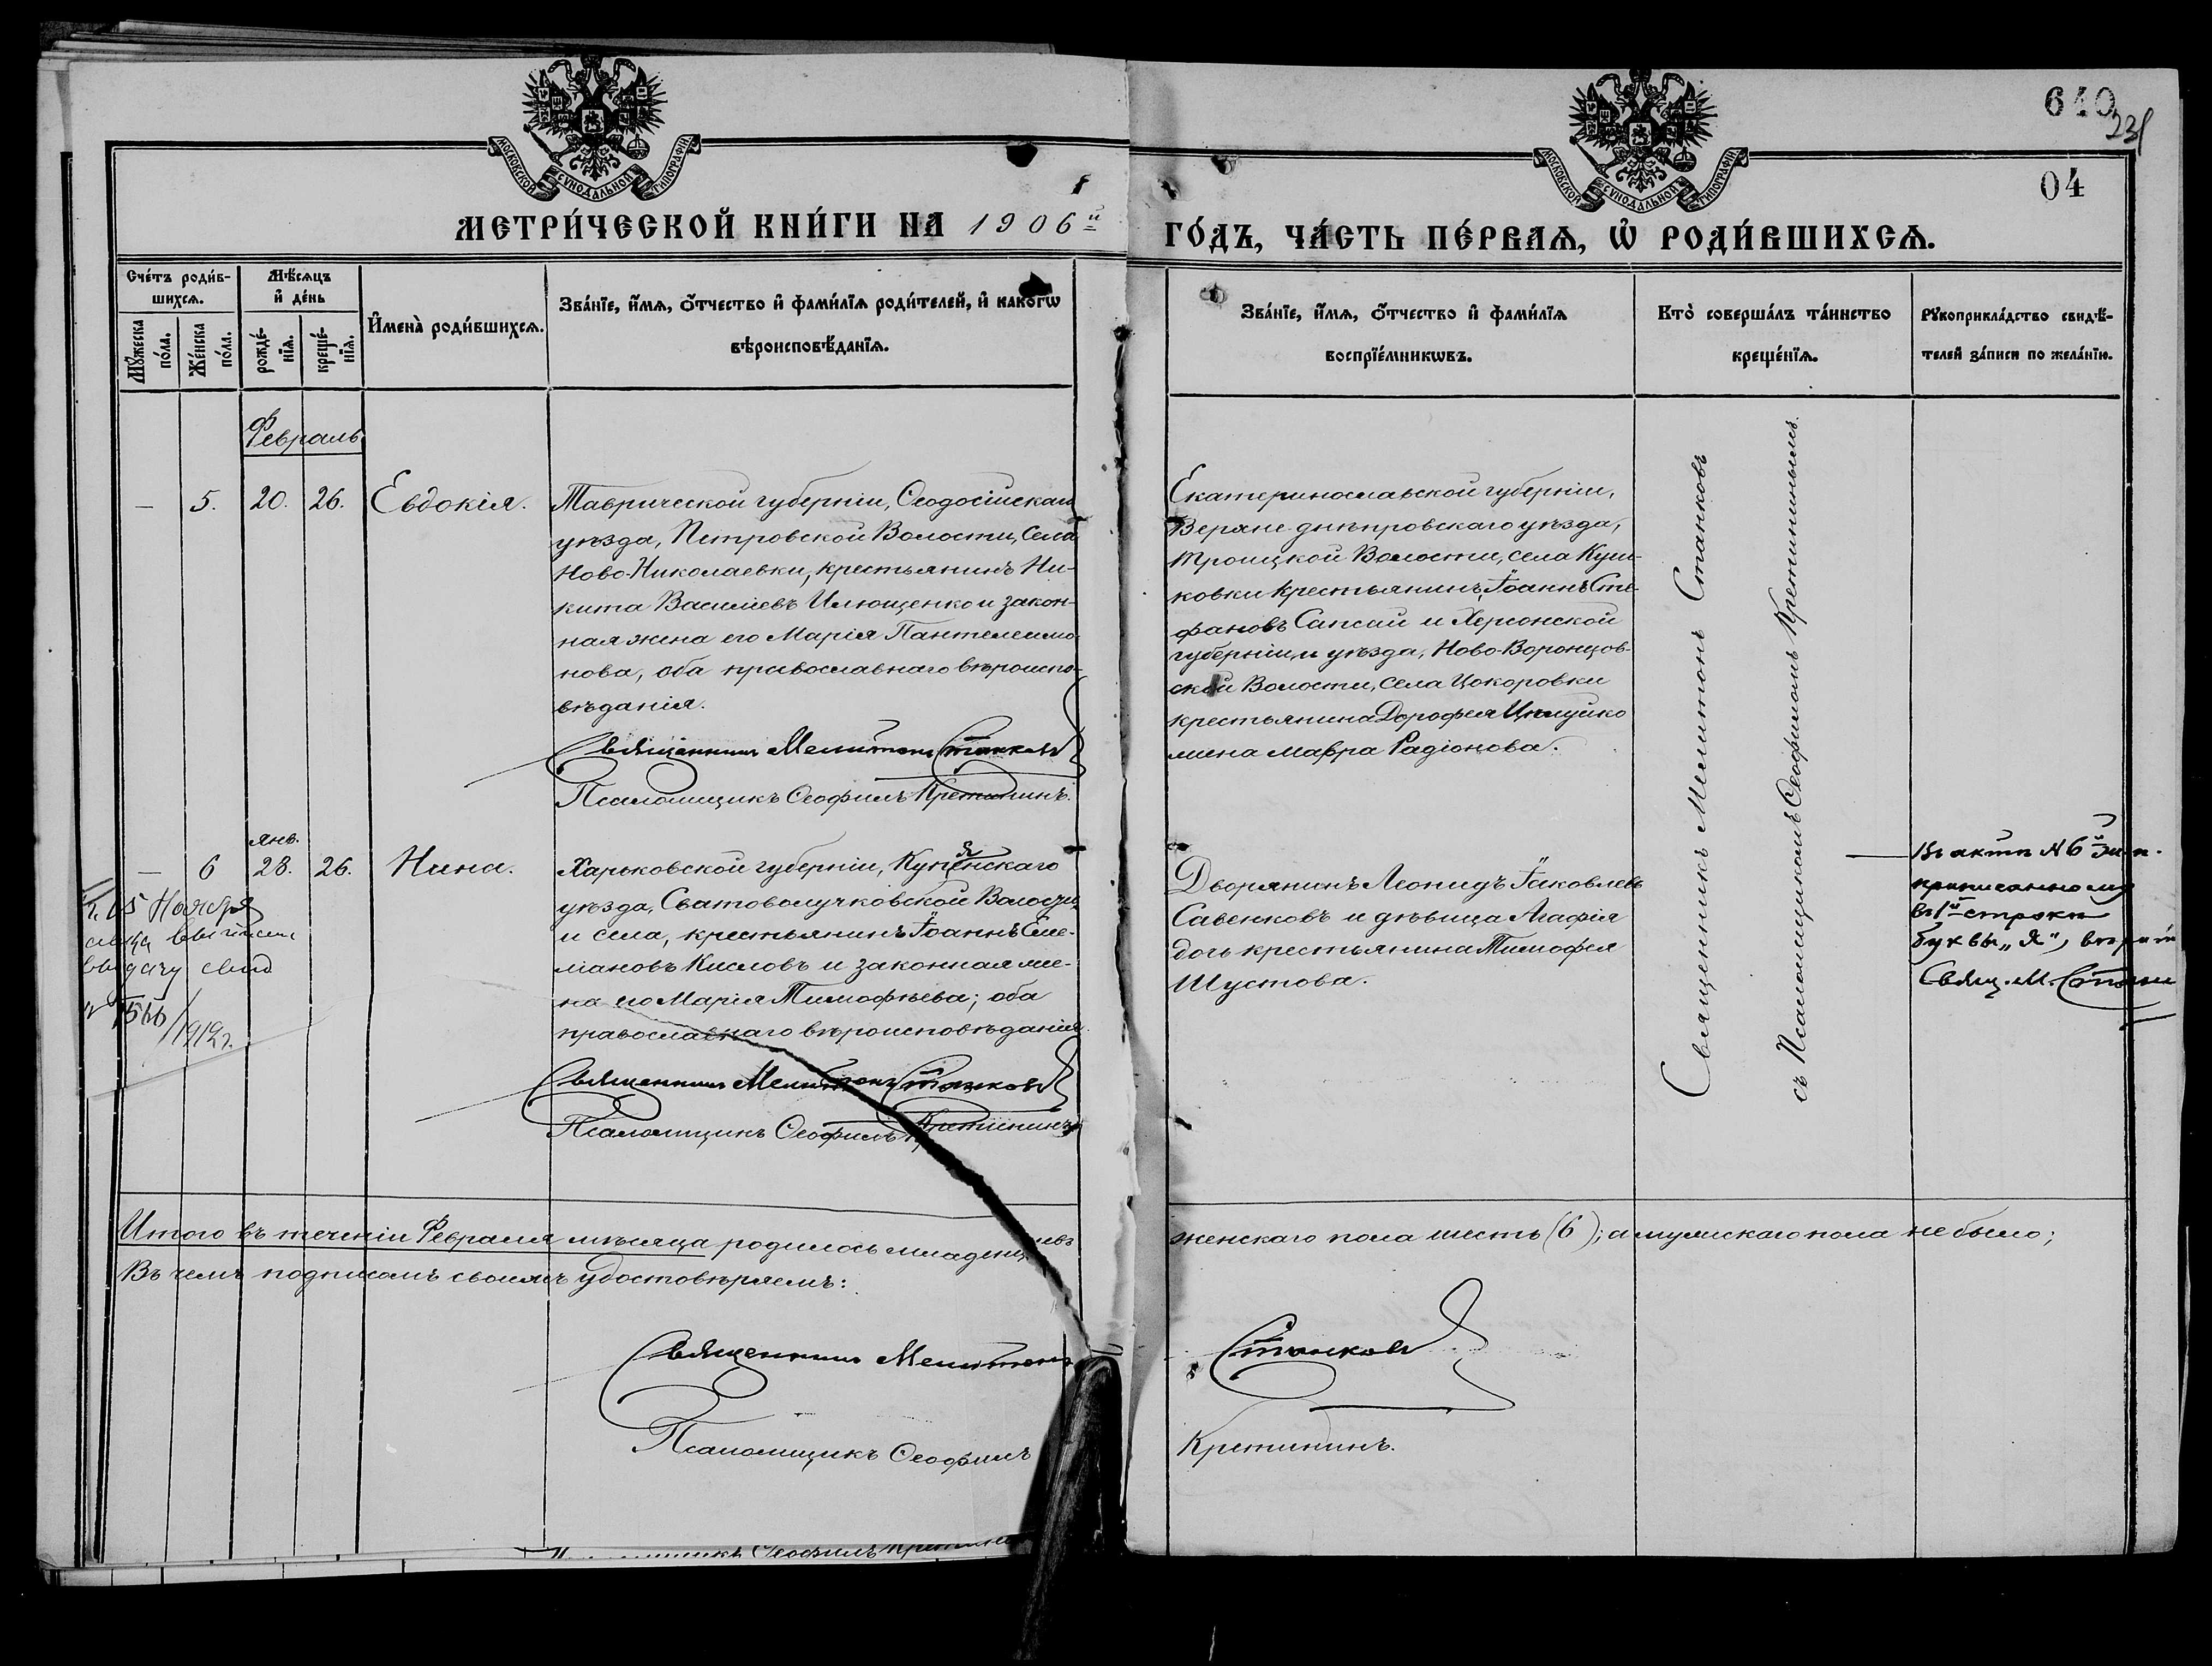 640
231
04
МОСКОВСКОЙ СѴНОДАЛЬНОЙ ТИПОГРАФІИ
МОСКОВСКОЙ СѴНОДАЛЬНОЙ ТИПОГРАФІИ
МЕТРИ́ЧЕСКОЙ КНИ́ГИ НА 1906й
ГО́ДЪ, ЧА́СТЬ ПЕ́РВАЯ, Ѡ РОДИ́ВШИХСѦ.
Сче́тъ роди́в-
шихсѧ.
Мꙋ́жеска по́ла.
Же́нска по́ла.
Мѣ́сѧцъ
и҆ де́нь
рожде́-
нїѧ.
креще́-
нїѧ.
И҆мена̀ роди́вшихсѧ.
Зва́нїе, и҆́мѧ, ѻ҆́тчество и҆ фами́лїѧ роди́телей, и҆ како́гѡ
вѣроисповѣ́данїѧ.
Зва́нїе, и҆́мѧ, ѻ҆́тчество и҆ фами́лїѧ
воспрїе́мникѡвъ.
Кто̀ соверша́лъ та́инство
креще́нїѧ.
Рꙋкоприкла́дство свидѣ́-
телей за́писи по жела́нїю.
Февраль
— 5. 20. 26. Евдокія.
Таврической губерніи, Ѳеодосійскаго
уѣзда, Петровской Волости, села
Ново-Николаевки, крестьянинъ Ни-
кита Васильевъ Илющенко и закон-
ная жена его Марія Пантелеимо-
нова, оба православнаго вѣроиспо-
вѣданія.
Священникъ Мелитонъ Станковъ
Псаломщикъ Ѳеофилъ Кретининъ.
Екатеринославской губерніи,
Верхнеднѣпровскаго уѣзда,
Троицкой Волости, села
крестьянинъ Іоаннъ Сте-
фановъ Сапсай и Херсонской
губерніи и уѣзда, Ново-Воронцов-
ской Волости, села
крестьянина Дорофея
жена Мавра Радіонова.
Священникъ Мелитонъ Станковъ
съ Псаломщикомъ Ѳеофиломъ Кретининымъ.
янв.
— 6 28. 26. Нина.
Харьковской губерніи, Купянскаго
уѣзда, Сватоволучковской Волости
и села, крестьянинъ Іоаннъ Се-
мановъ Кисловъ и законная же-
на его Марія Тимофѣева; оба
православнаго вѣроисповѣданія.
Священникъ Мелитонъ Станковъ
Псаломщикъ Ѳеофилъ Кретининъ
Дворянинъ Леонидъ Іаковлевъ
Савенковъ и дѣвица Агафія
дочь крестьянина Тимофея
Шустова.
Въ актѣ № 6й
приписанному
въ 1й строкѣ
буквы „я", вѣрить
Свящ. М. Станк
15 Ноября
выдачу свид
1919г.
Итого въ теченіи Февраля мѣсяца родилось младенцевъ
женскаго пола шесть (6); а мужскаго пола не было;
Въ чемъ подписомъ своимъ удостовѣряемъ:
Священникъ Мелитонъ
Станковъ
Псаломщикъ Ѳеофилъ
Кретининъ.
Ѳеофилъ Кретинин